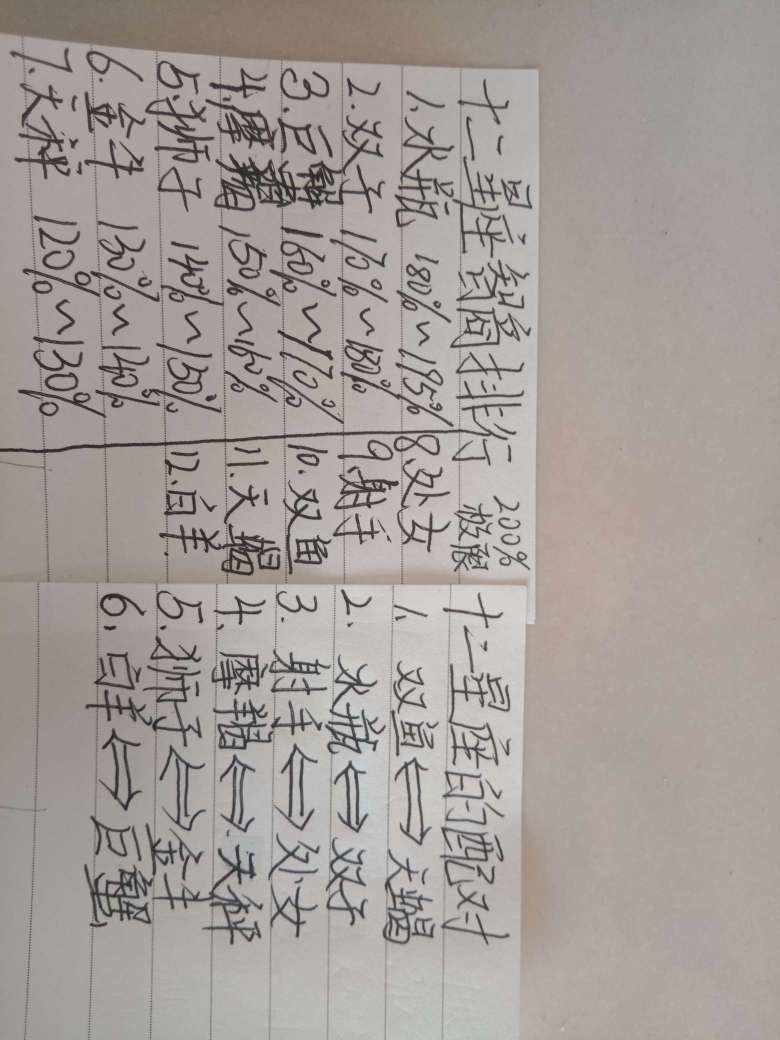 十二星座智商排行 200%
极限
1. 水瓶 180%~195%
2. 双子 170%~180%
3. 巨蟹 160%~170%
4. 摩羯 150%~160%
5. 狮子 140%~150%
6. 金牛 130%~140%
7. 天秤 120%~130%
8. 处女
9. 射手
10. 双鱼
11. 天蝎
12. 白羊
十二星座的配对
1. 双鱼⇔天蝎
2. 水瓶⇔双子
3. 射手⇔处女
4. 摩羯⇔天秤
5. 狮子⇔金牛
6. 白羊⇔巨蟹